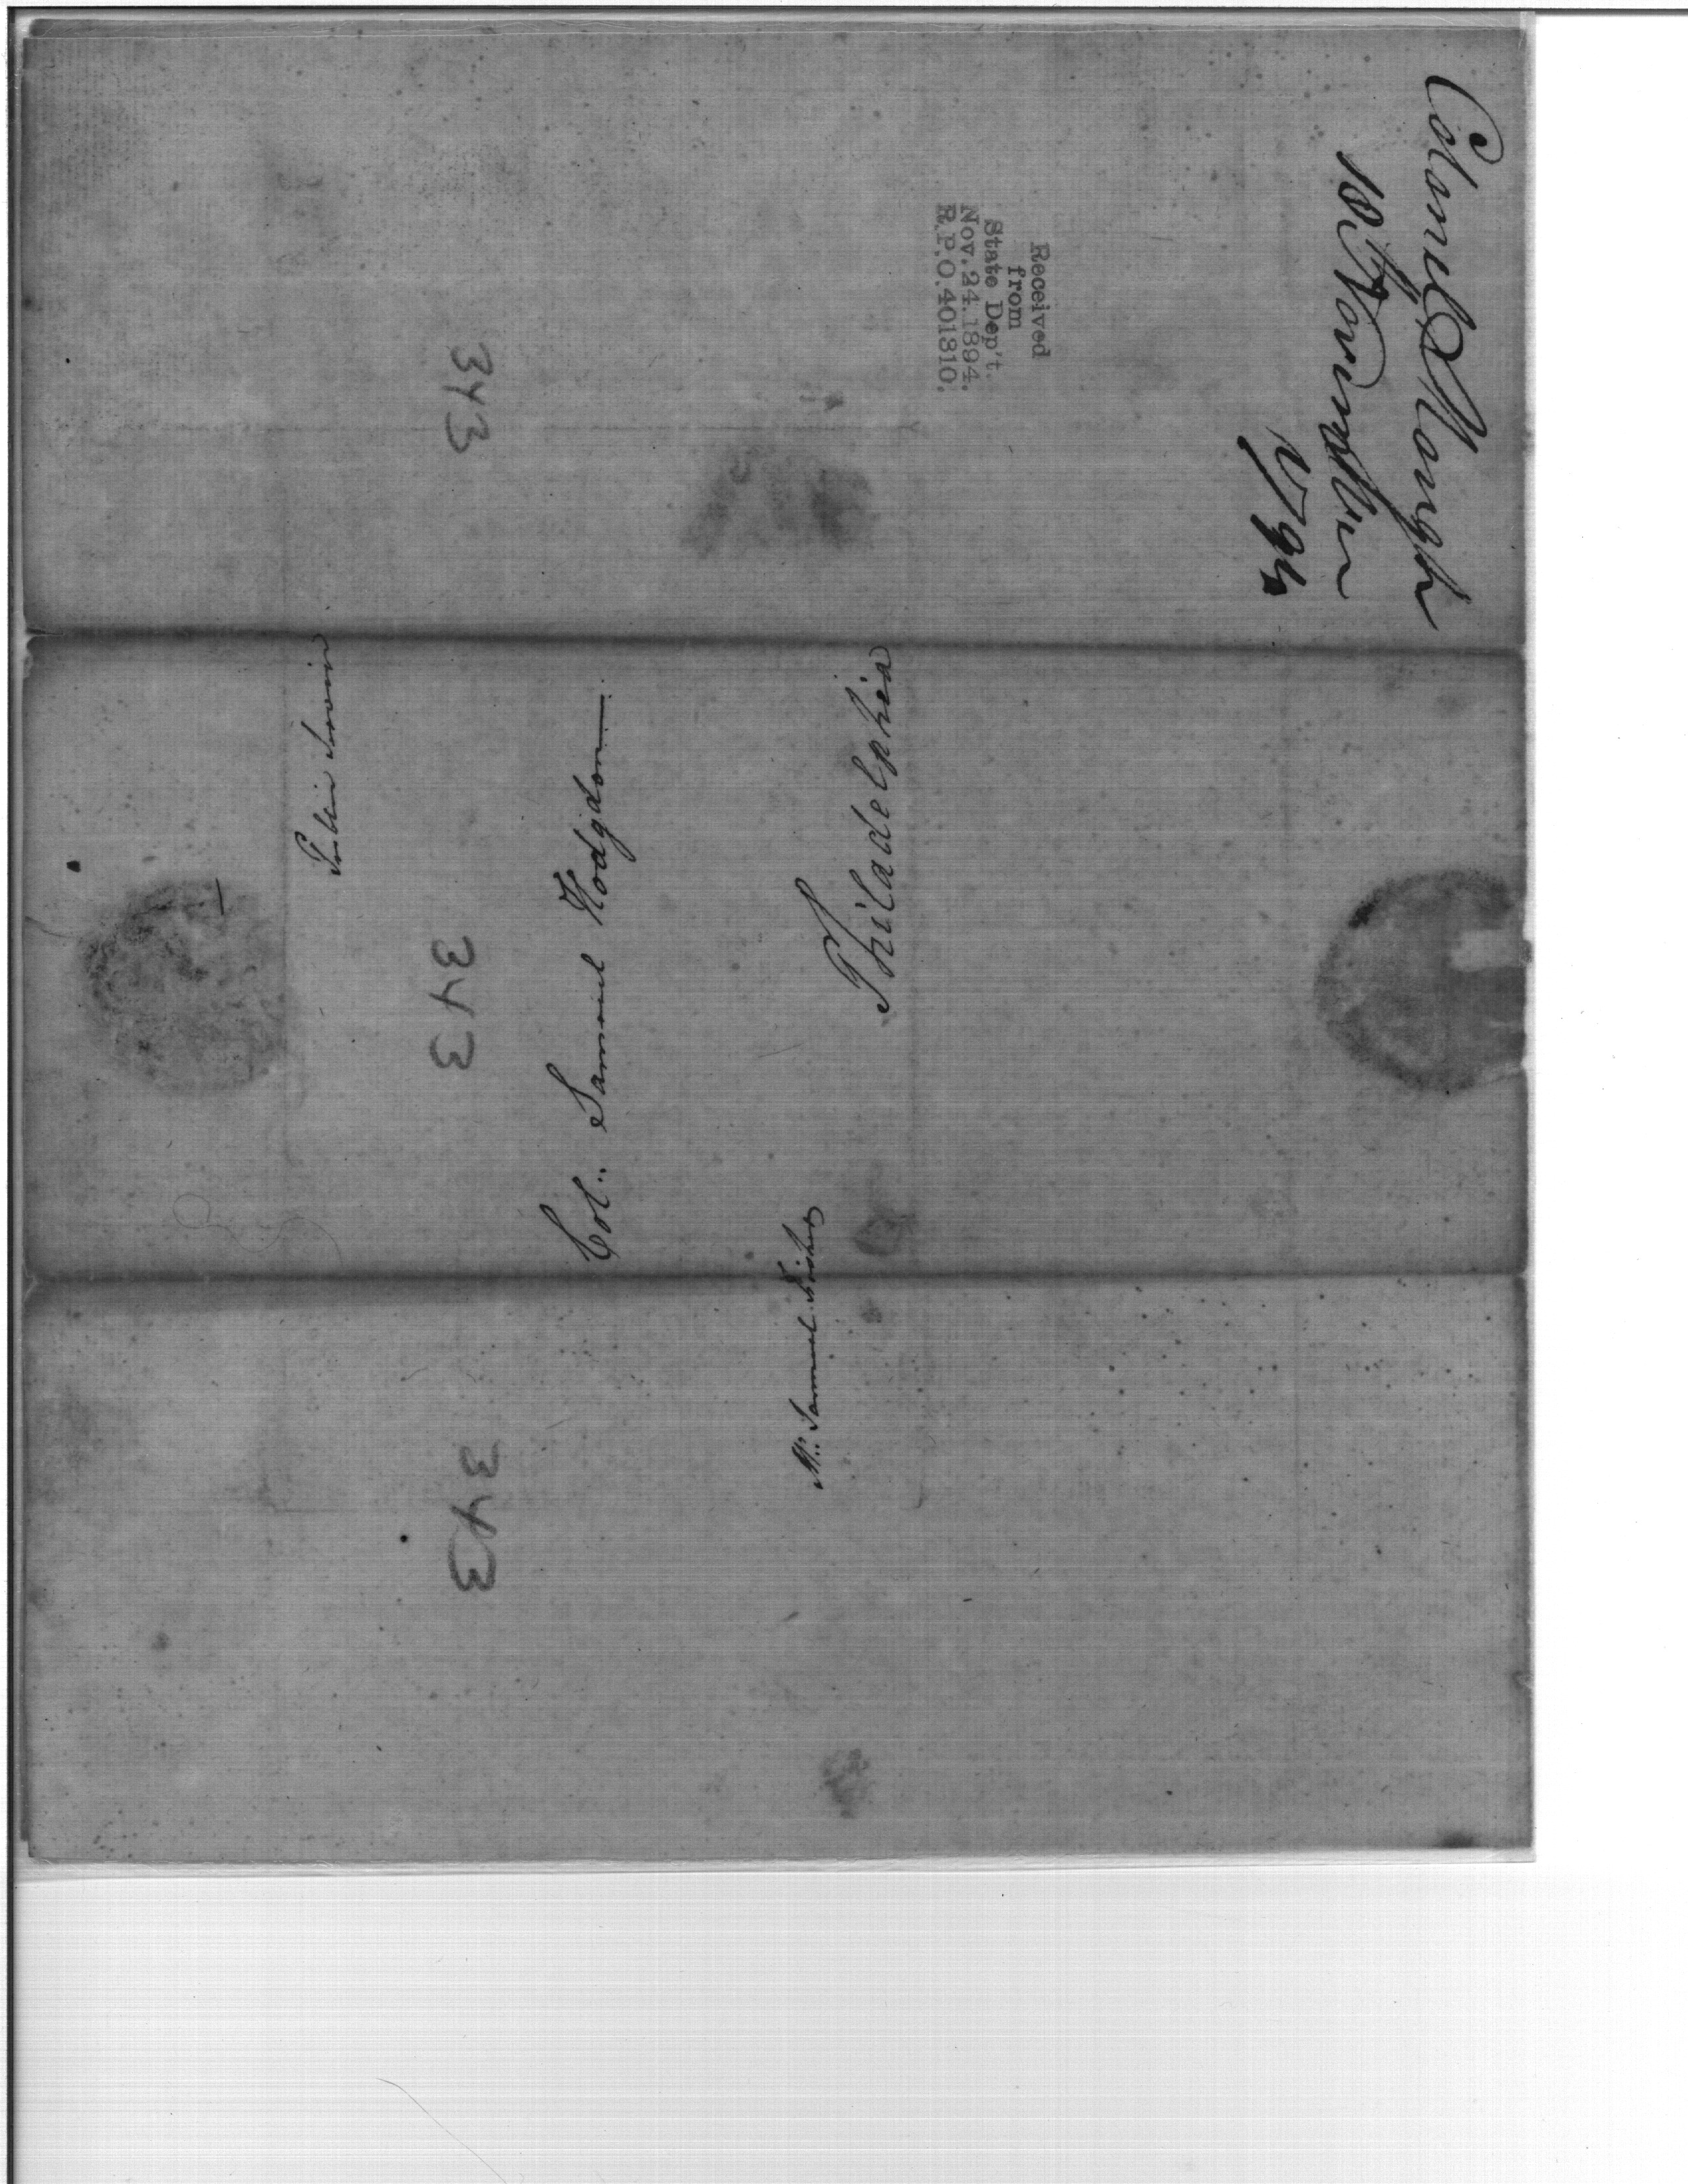 Colonel
18th November
1794
Received
from
State Dep't.
Nov. 24. 1894.
R.P.O. 401810.
343
Public Service
343
Col: Samuel Hodgdon
Philadelphia
Mr. Samuel
343